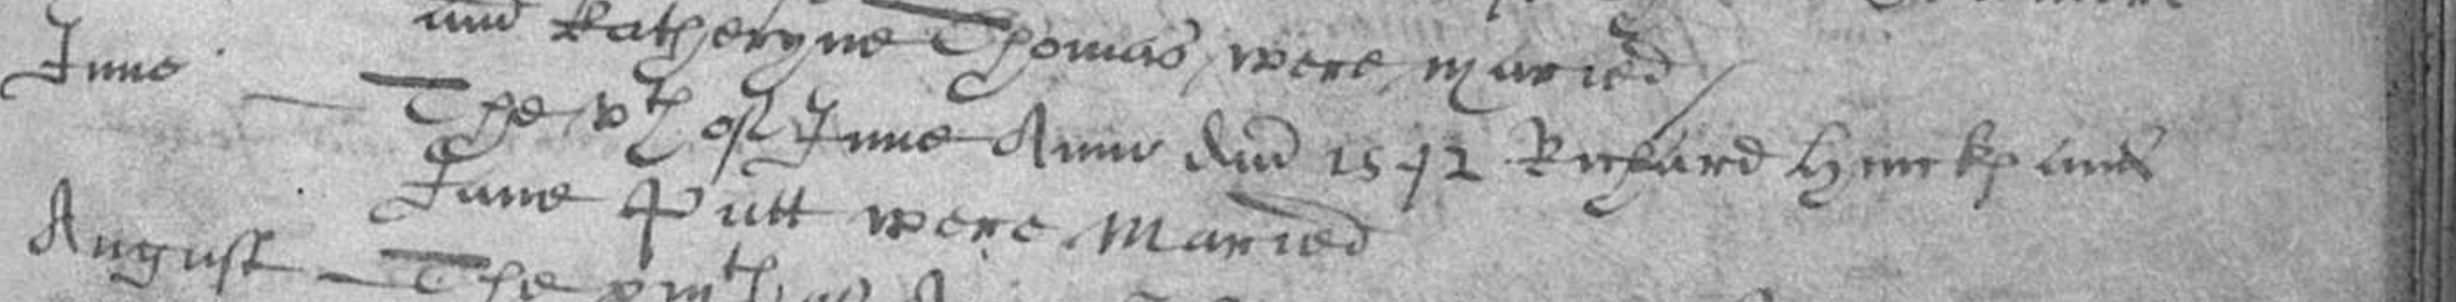 and Katheryne Thomas were maried
June
The vth of June Anno dni 1572 Richard and
Jane Putt were Maried
August The